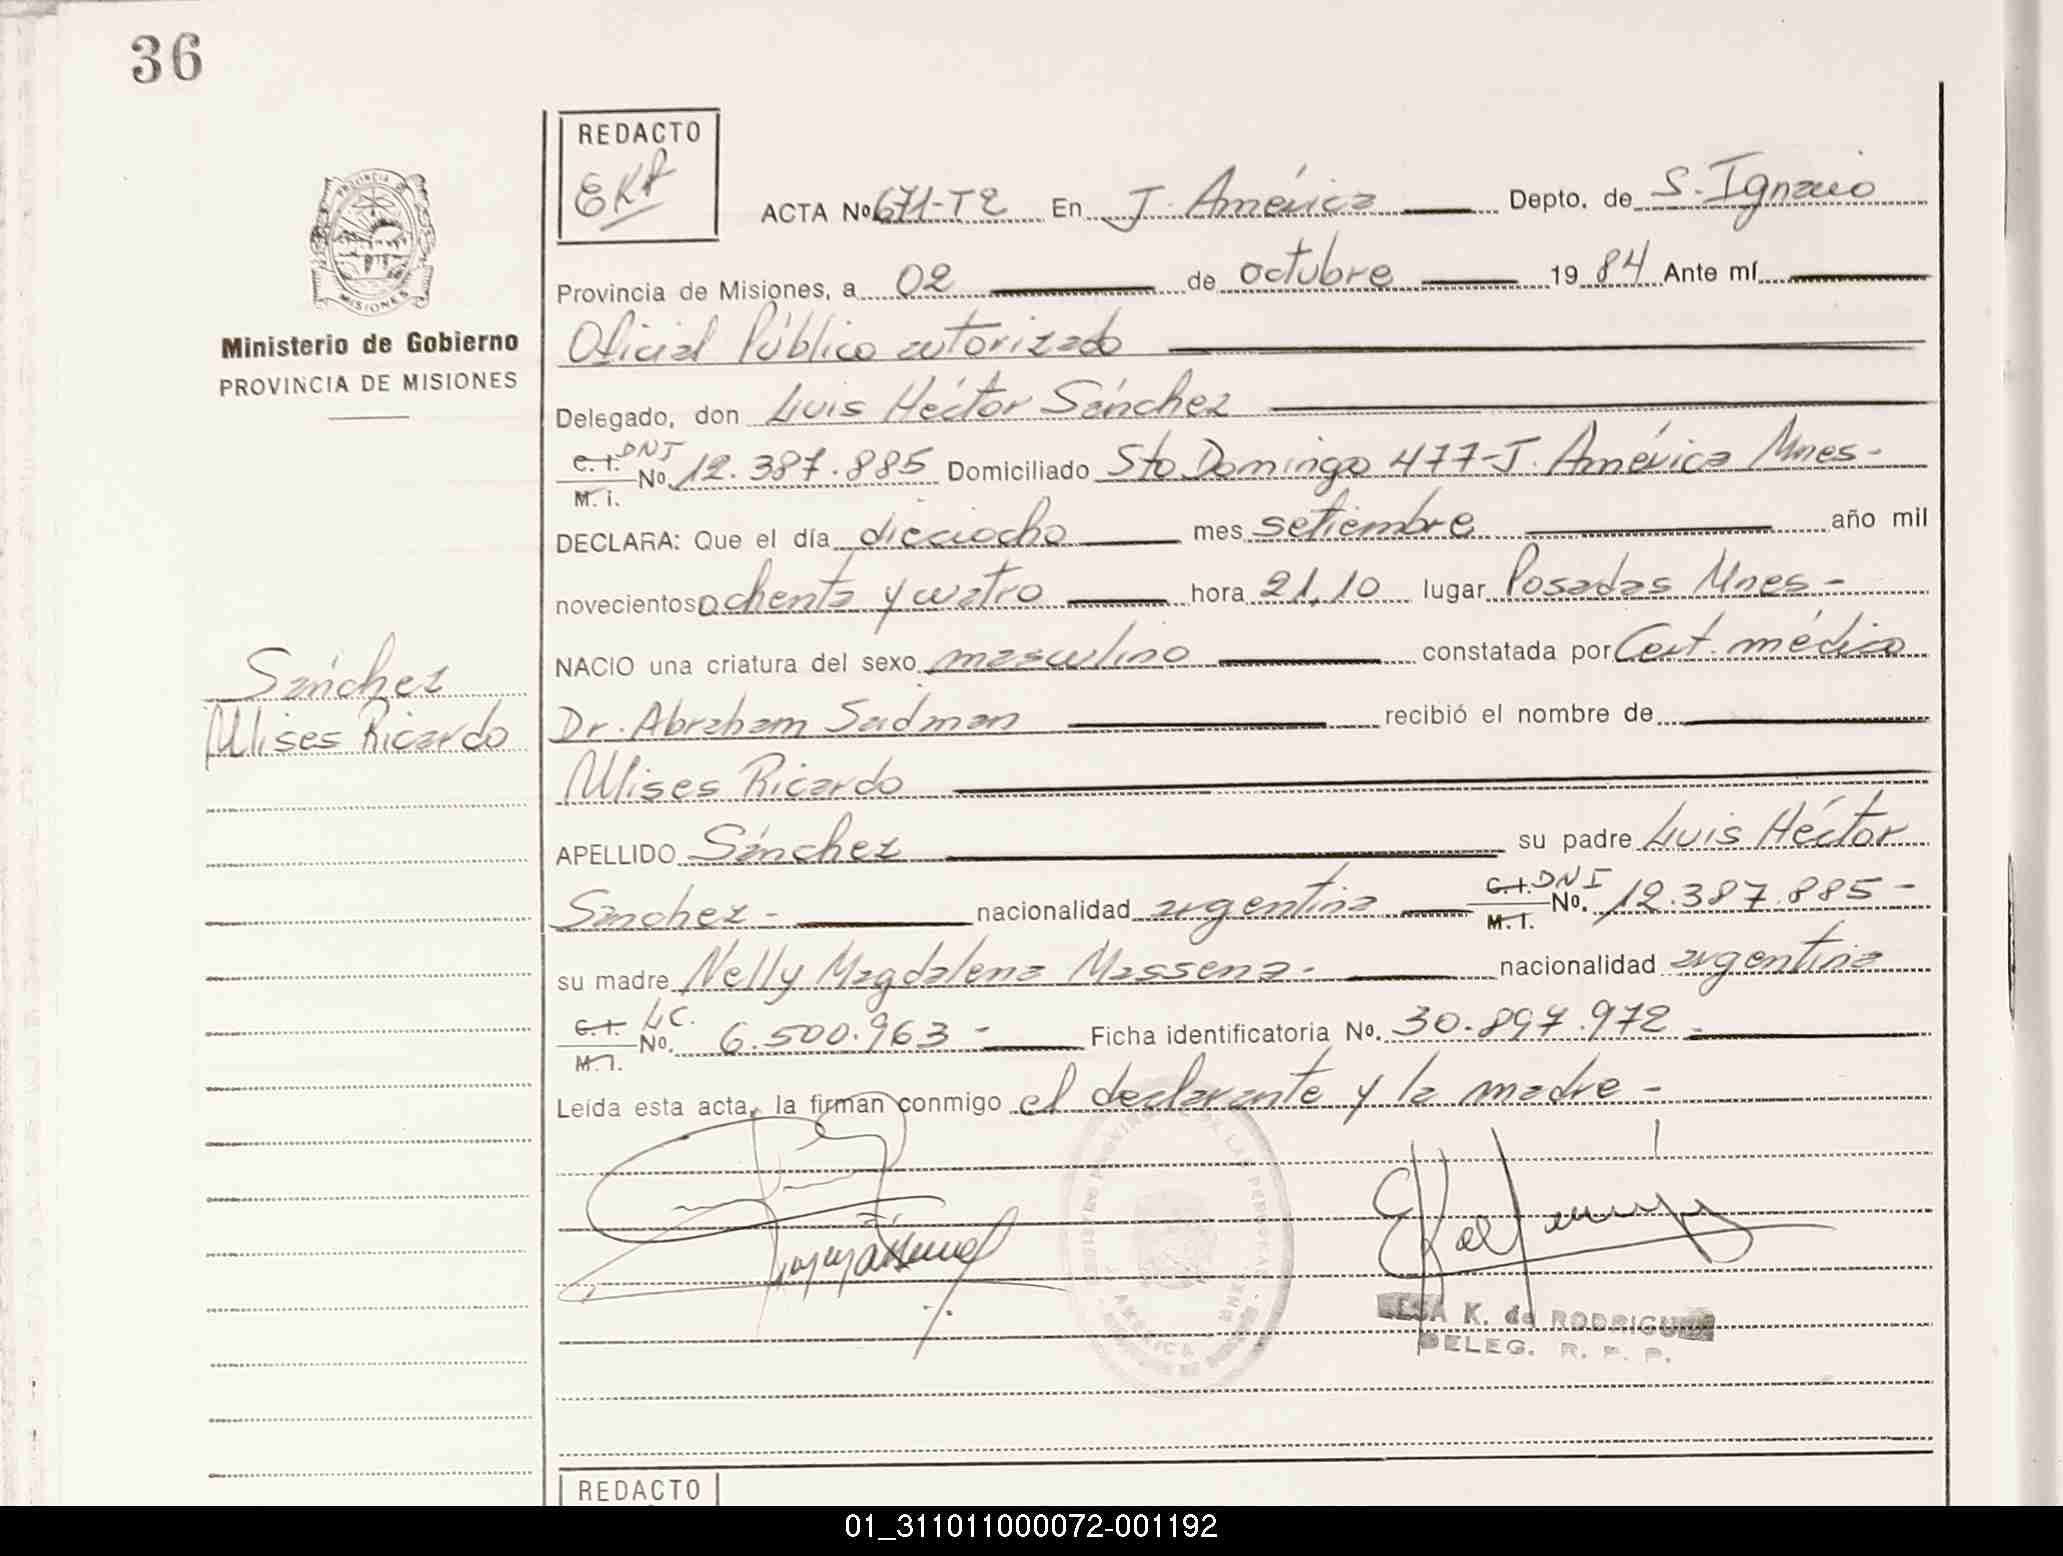 36
REDACTO
EKR
ACTA No 671-T2 En J. América Depto. de S. Ignacio
Provincia de Misiones, a 02 de octubre 19 84 Ante mí
Oficial Público autorizado
Ministerio de Gobierno
PROVINCIA DE MISIONES
Delegado, don Luis Héctor Sánchez
C. I. DNI
M. i. No. 12.387.885 Domiciliado Sto Domingo 477-J. América Mnes-
DECLARA: Que el día dieciocho mes setiembre año mil
novecientos ochenta y cuatro hora 21,10 lugar Posadas Mnes-
NACIO una criatura del sexo masculino constatada por Cert. médico
Sánchez
Ulises Ricardo
Dr. Abraham Sudman recibió el nombre de
Ulises Ricardo
APELLIDO Sánchez su padre Luis Héctor
Sánchez- nacionalidad argentina C.I. DNI M. I. No. 12.387.885-
su madre Nelly Magdalena Massena- nacionalidad argentina
C. I. LC.
M. I. No. 6.500.963- Ficha identificatoria No. 30.897.972-
Leída esta acta, la firman conmigo el declarante y la madre-
ELSA K. de RODRIGUEZ
DELEG. R. P. P.
REDACTO
01_311011000072-001192